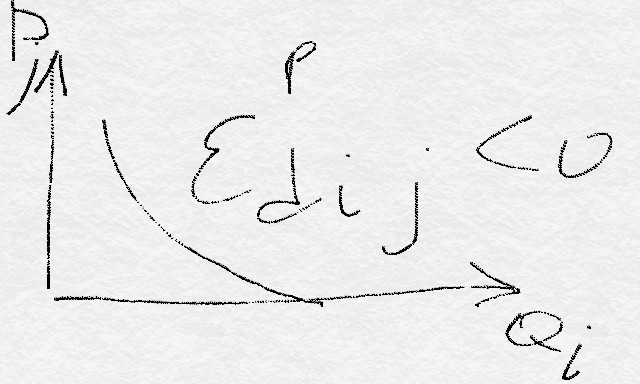 Pj
εᵖdij < 0
Qi